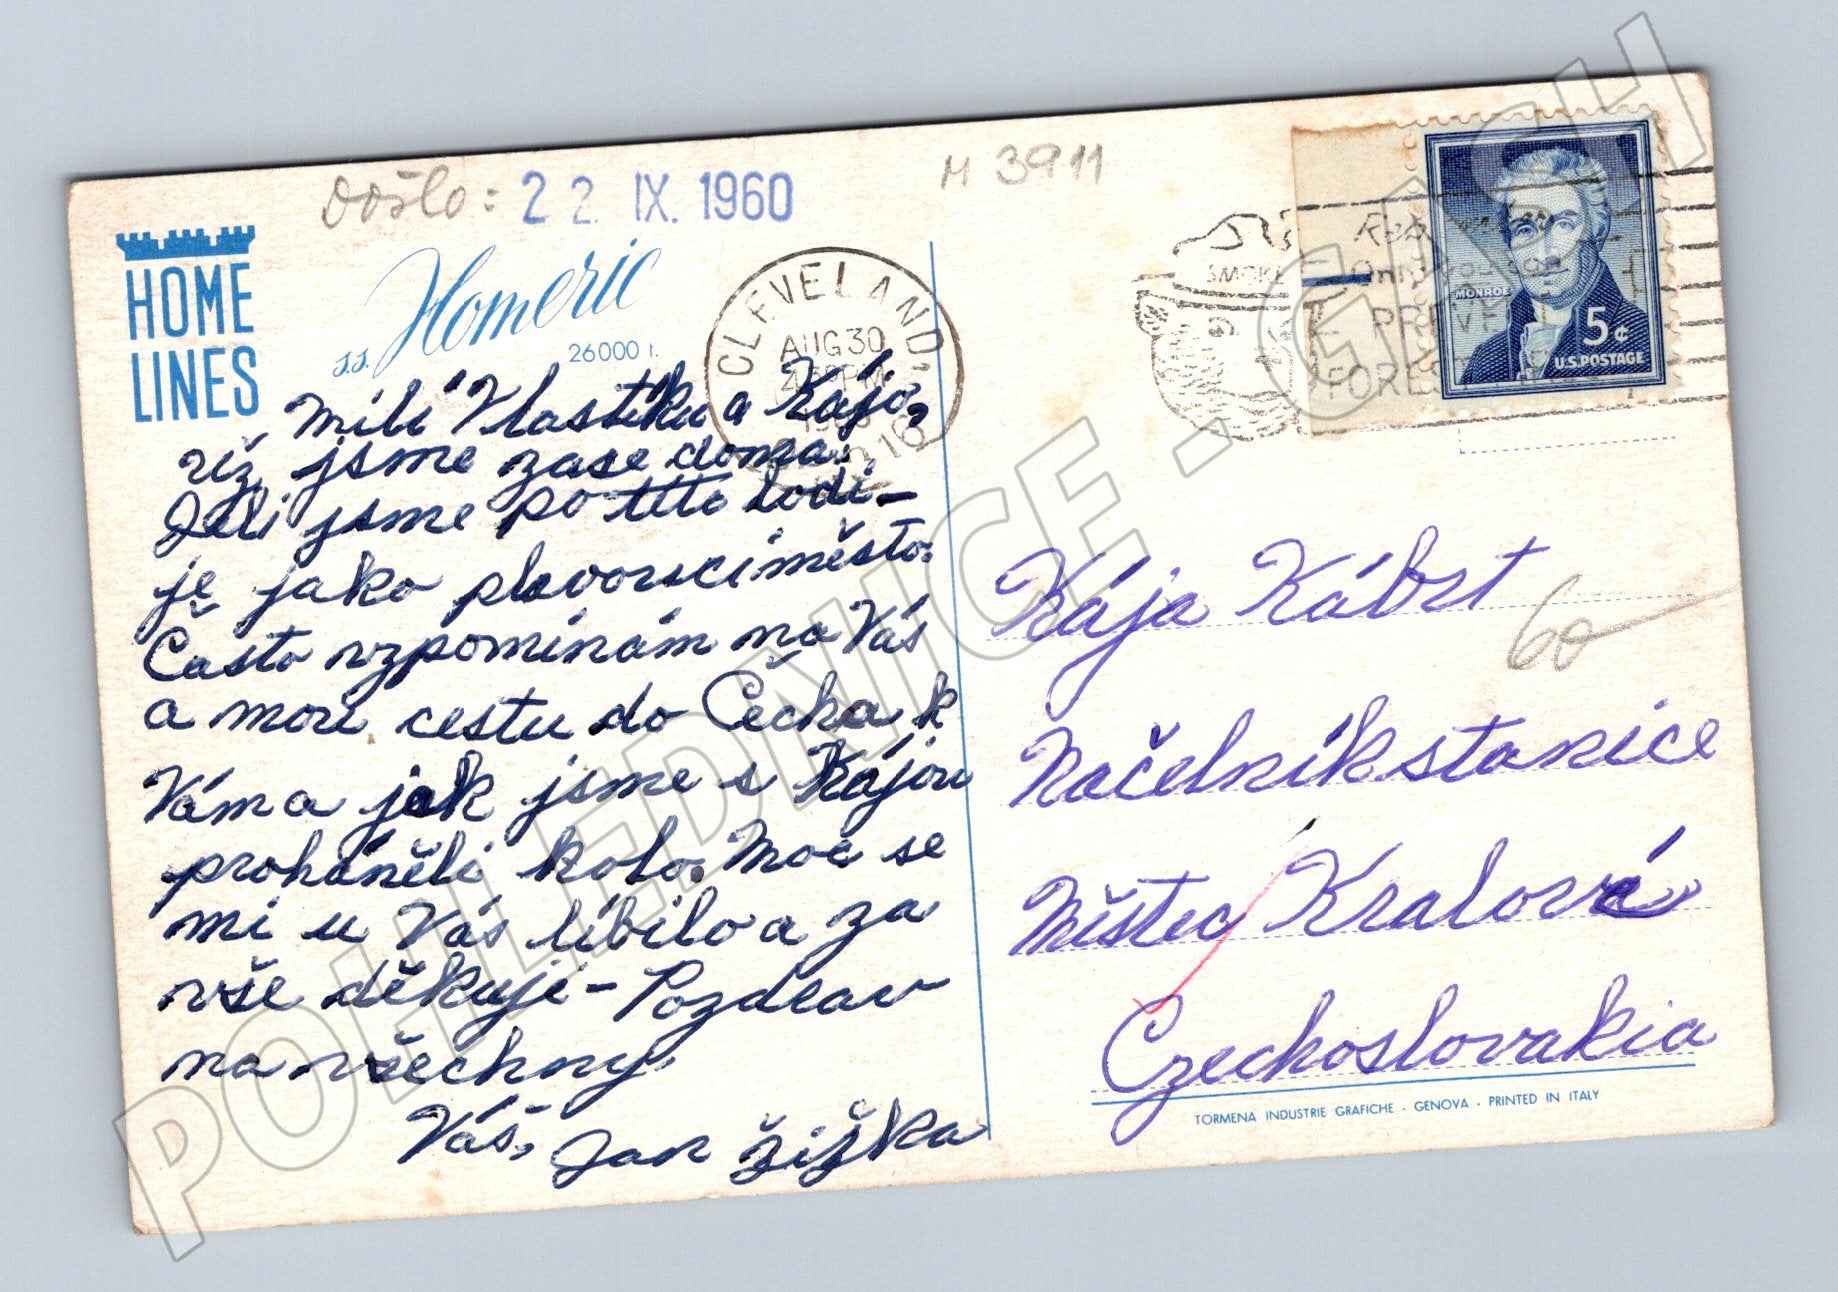 Došlo: 22. IX. 1960
M 3911
HOME
LINES
s.s. Homeric
26000 t.
CLEVELAND,
AUG 30
PM
SMOKEY
Only you can
PREVENT
FOREST
MONROE
5¢
U.S. POSTAGE
Milí Vlastíku a Kájo,
již jsme zase doma.
Jeli jsme po této lodi-
je jako plovoucí město.
Často vzpomínám na Vás
a mou cestu do Čecha k
Váma jak jsme s Kájou
proháněli kolo. Moc se
mi u Vás líbilo a za
vše děkuji - Pozdrav
na všechny.
Váš, Jan Žižka
Kája Kábrt
60
Načelník stanice
Městec Kralové
Czechoslovakia
TORMENA INDUSTRIE GRAFICHE - GENOVA - PRINTED IN ITALY
POHLEDNICE - CZ.CH